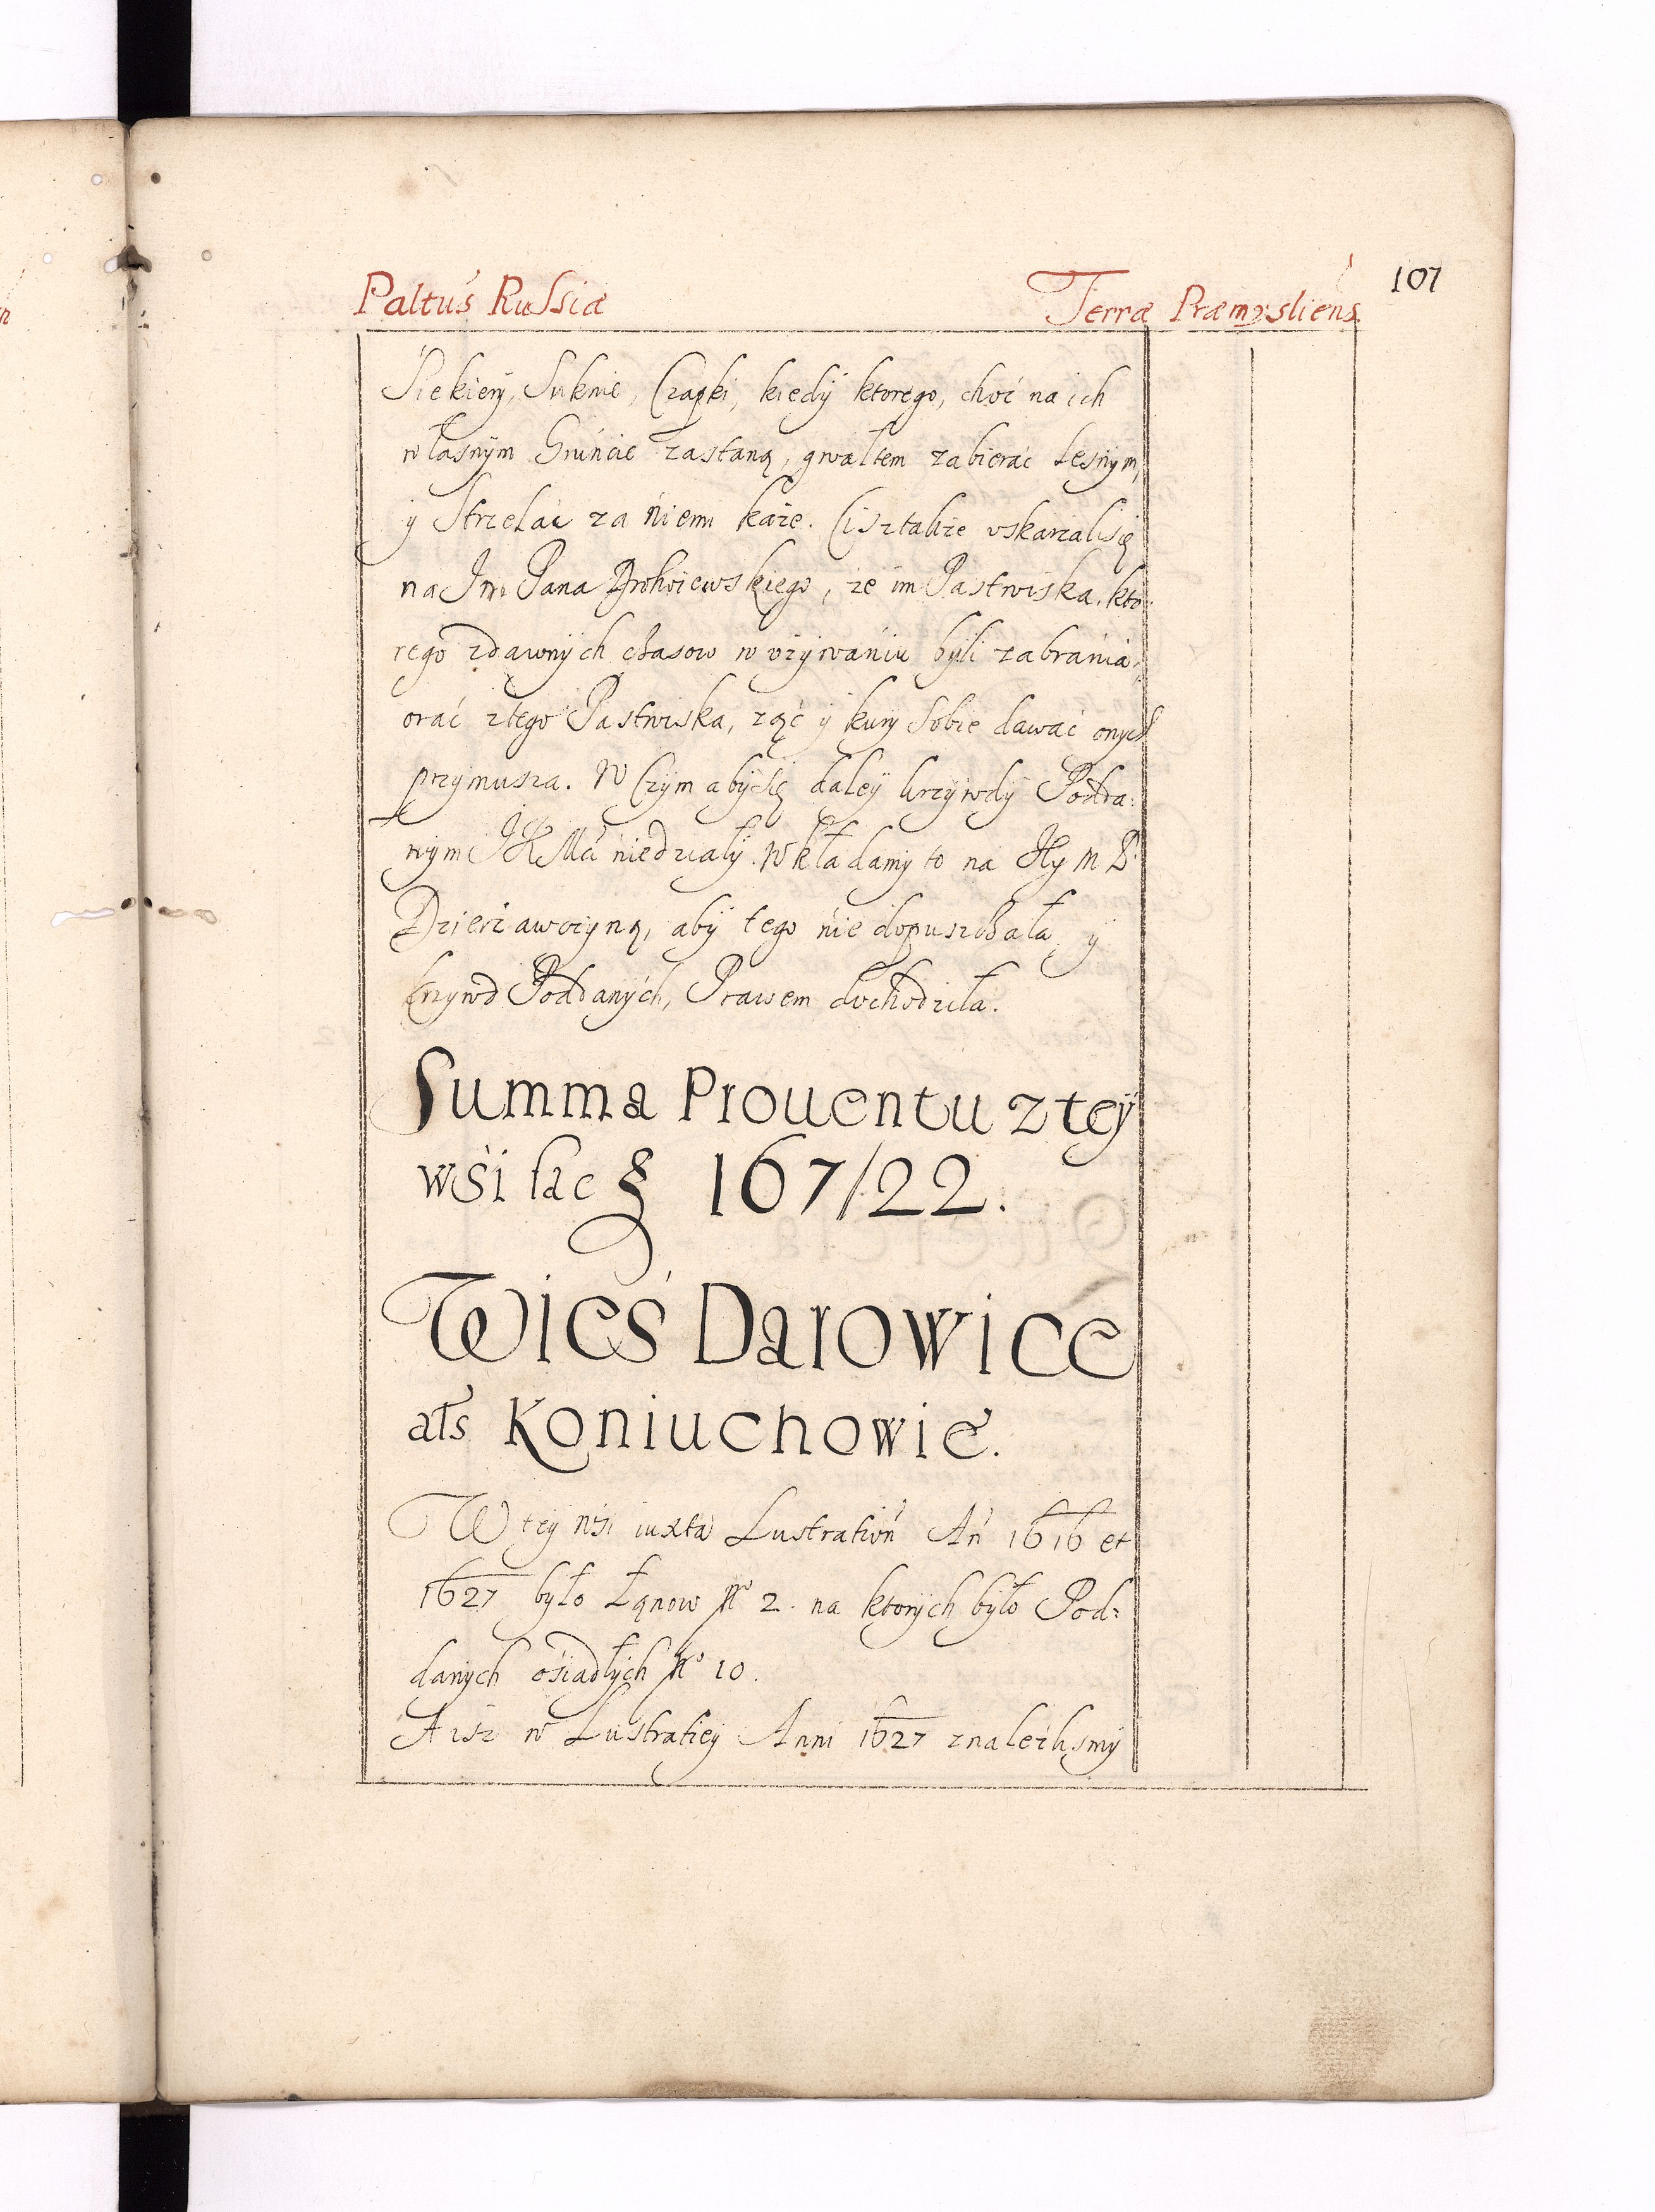 Paltus Russiæ Terræ Præmysliens. 107
Siekiery, Suknie, Czapki, kiedy ktorego, choć na ich
własnym Gruńcie zastaną, gwałtem zabierać Leśnym,
y Strzelać za niemi każe. Ciż także uskarzali się
na Jmo Pana Drohoiewskiego, że im Pastwiska, kto:
rego zdawnych czasow w vzywaniu byli zabrania,
orać z tego Pastwiska, ząć y kury Sobie dawać onych
przymusza. W Czym aby się daley krzywdy Podda:
nym JKMci niedziały. Wkładamy to na Jey M P.
Dzierżawczyną, aby tego nie dopuszczała y
krzywd Poddanych, Prawem dochodziła.
Summa Prouentu z tey
wśi fac 167/22.
Wieś Darowice
als Koniuchowie.
W tey wśi iuxta Lustration An 1616 et
1627 było Łanow No 2. na ktorych było Pod:
danych ośiadłych No 10.
A isz w Lustratiey Anni 1627 znalezlismy